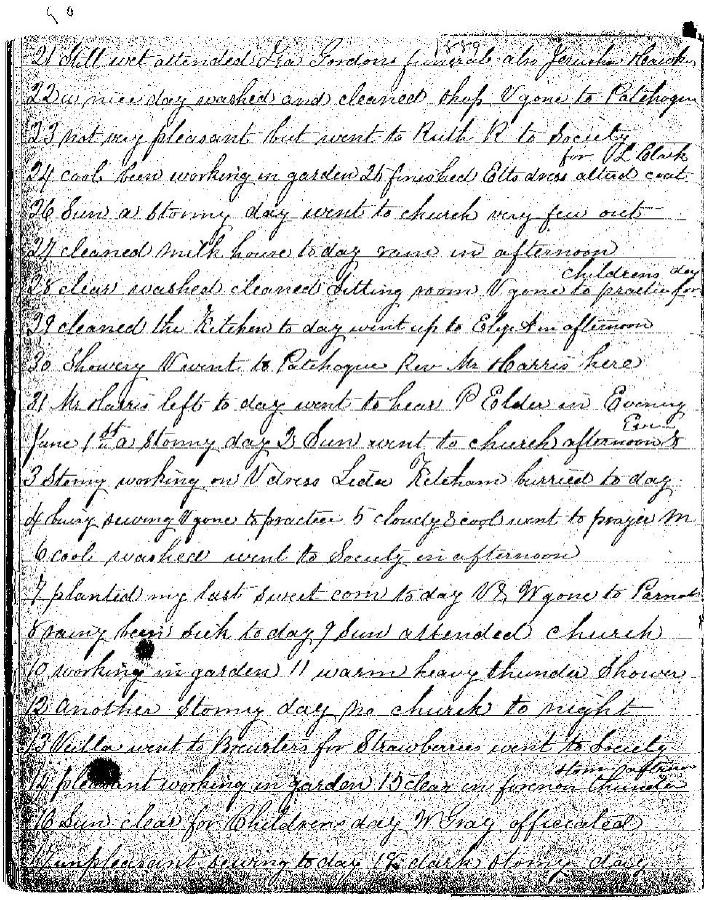 90
1889
21 Still wet attended Ira Gordons funeral also Jerusha Hawkins
22 a nice day washed and cleaned shop V gone to Patchogue
23 not very pleasant but went to Ruth R to Society
for J L Clark
24 cool been working in garden 25 finished Etts dress altred coat
26 Sun a stomy day went to church very few out
27 cleaned milk house to day rain in afternoon
childrens day
28 clear washed cleaned sitting room V gone to practice for
29 cleaned the Kitchen to day went up to Eliza A in afternoon
30 Showery V went to Patchogue Rev Mr Harris here
31 Mr Harris left to day went to hear P Elder in Evening
Eve
June 1st a stomy day 2 Sun went to church afternoon &
3 Stomy working on V dress Leda Ketcham burried to day
4 busy sewing V gone to practice 5 cloudy & cool went to prayer M
6 cool washed went to Society in afternoon
7 planted my last sweet corn to day V & W gone to
8 rainy been sick to day 9 Sun attended church
10 working in garden 11 warm heavy thunder Shower
12 another Stomy day no church to night
13 Veilla went to Brewsters for Strawberries went to Society
stomy afternoon
14 pleasant working in garden 15 clear in forenon thunder
16 Sun clear for Childrens day W Gray officiated
17 unpleasant sewing to day 18 dark stomy day